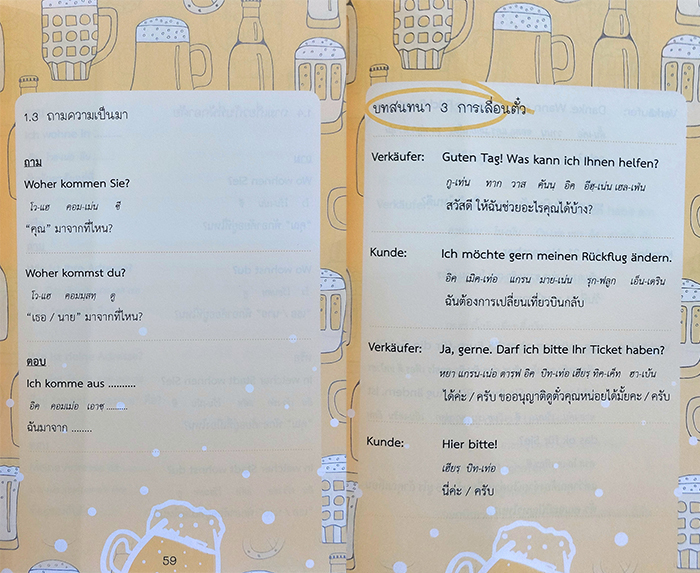 1.3 ถามความเป็นมา
ถาม
Woher kommen Sie?
โว-แฮ คอม-เม่น ซี
“คุณ” มาจากที่ไหน?
Woher kommst du?
โว-แฮ คอมมสท ดู
“เธอ / นาย” มาจากที่ไหน?
ตอบ
Ich komme aus ..........
อิค คอมเม่อ เอาซ ..........
ฉันมาจาก ........
59
บทสนทนา 3 การเลื่อนตั๋ว
Verkäufer: Guten Tag! Was kann ich Ihnen helfen?
กู-เท่น ทาก วาส คันนฺ อิค อีฮฺ-เน่น เฮล-เฟ่น
สวัสดี ให้ฉันช่วยอะไรคุณได้บ้าง?
Kunde: Ich möchte gern meinen Rückflug ändern.
อิค เม็ค-เท่อ แกรน มาย-เน่น รุ่ก-ฟลูก เอ็น-เดริน
ฉันต้องการเปลี่ยนเที่ยวบินกลับ
Verkäufer: Ja, gerne. Darf ich bitte Ihr Ticket haben?
หยา แกรน-เน่อ ดารฟ อิค บิท-เท่อ เฮียร ทิค-เค็ท ฮา-เบ้น
ได้ค่ะ / ครับ ขออนุญาติดูตั๋วคุณหน่อยได้มั้ยคะ / ครับ
Kunde: Hier bitte!
เฮียร บิท-เท่อ
นี่ค่ะ / ครับ